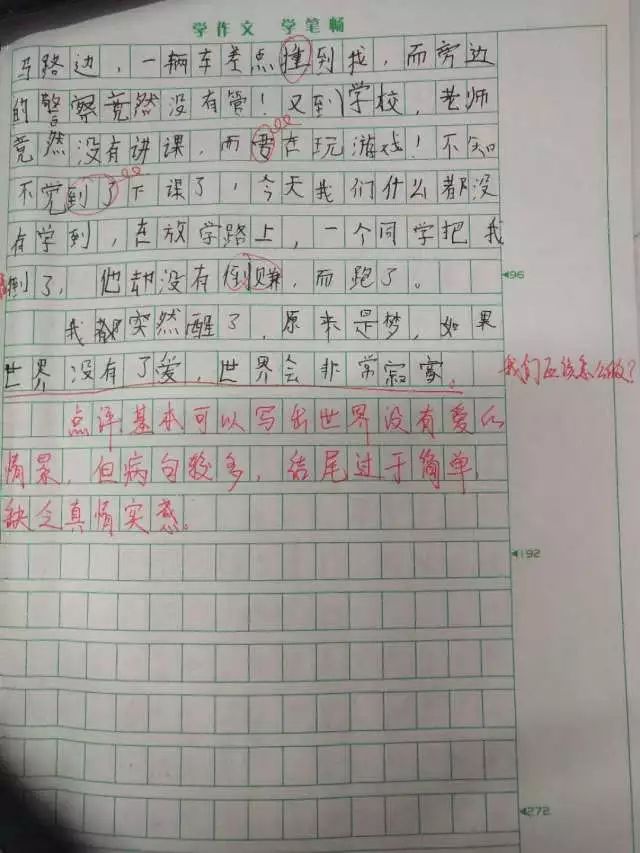 学作文 学笔畅
马路边，一辆车差点撞到我，而旁边
的警察竟然没有管！又到学校，老师
竟然没有讲课，而是在玩游戏！不知
不觉到了下课了，今天我们什么都没
有学到，在放学路上，一个同学把我
倒了，他却没有倒赚，而跑了。
96
我都突然醒了，原来是梦，如果
世界没有了爱，世界会非常寂寞。
我们应该怎么做？
点评基本可以写出世界没有爱心
情景，但病句较多，结尾过于简单，
缺乏真情实感。
192
272